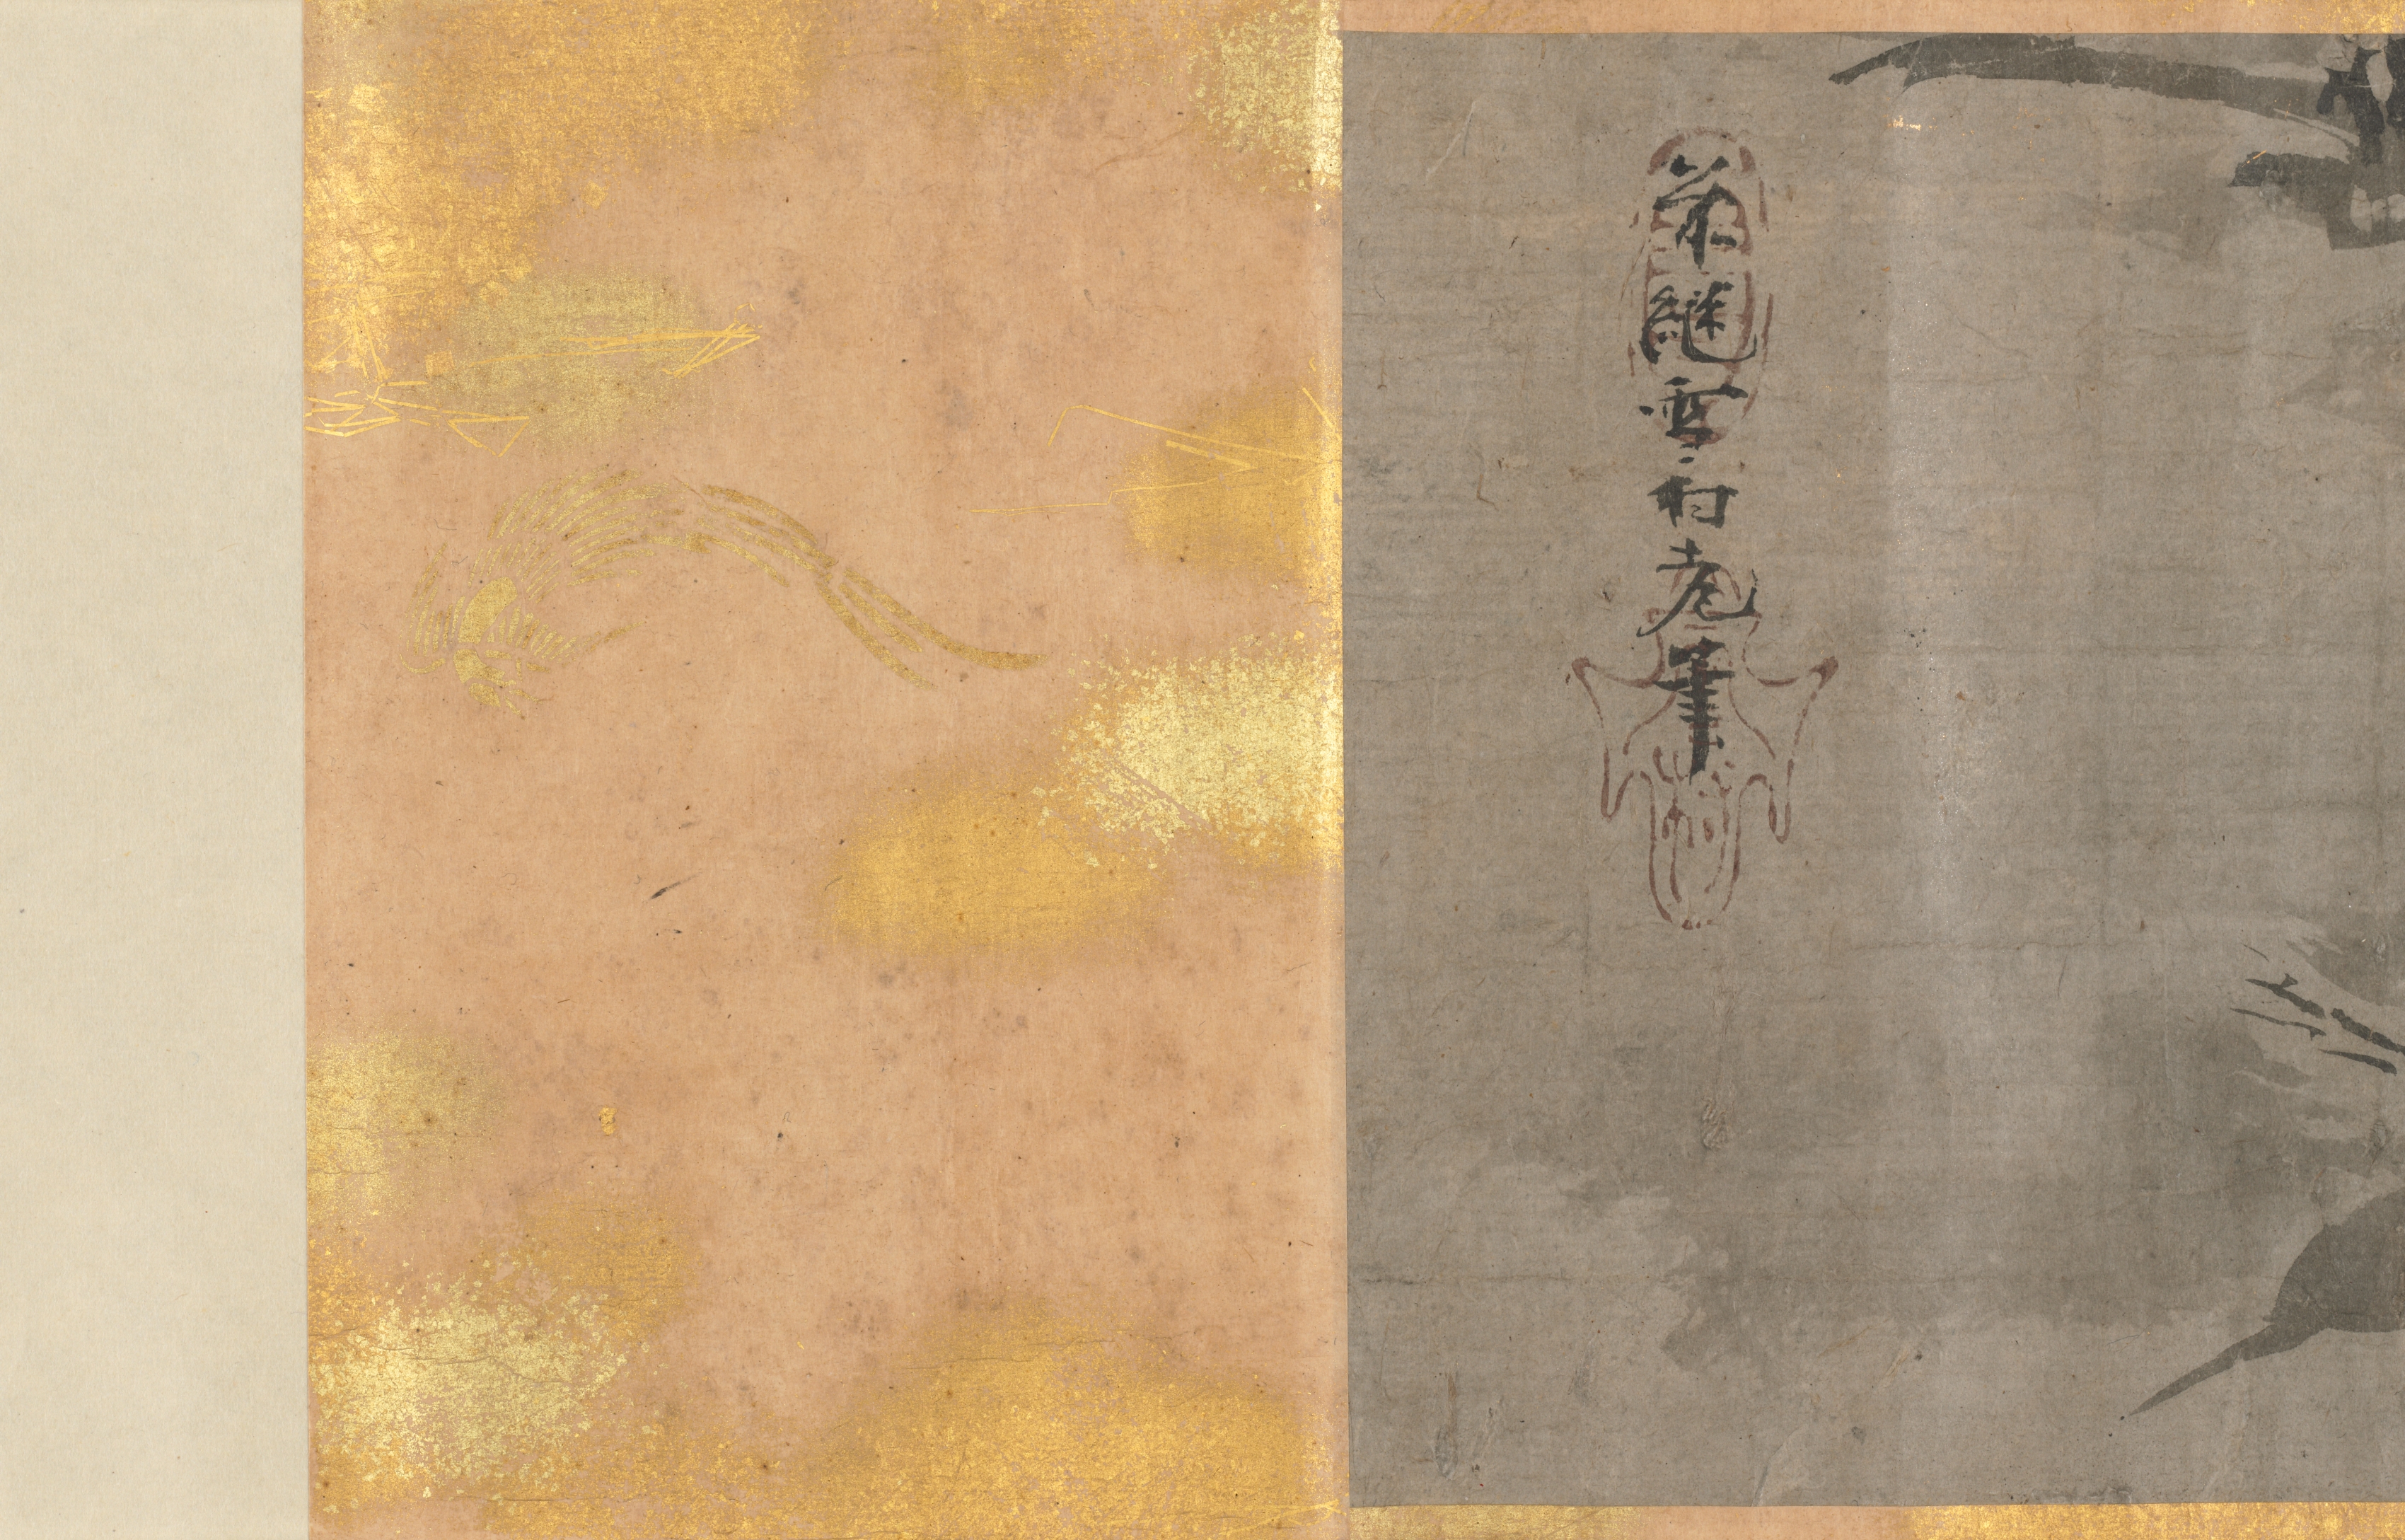 継雪村老筆